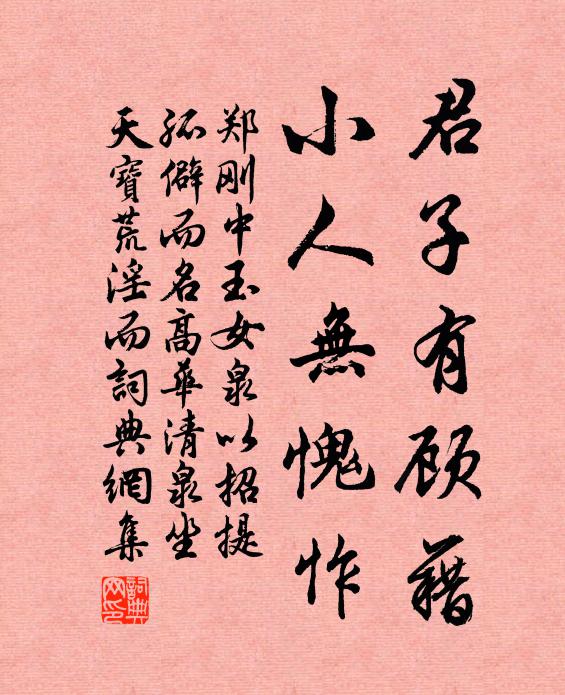 君子有顾藉
小人無愧怍
郑刚中玉女泉以招提
孤僻而名高華清泉坐
天寶荒淫而詞典網集
詞典
网印